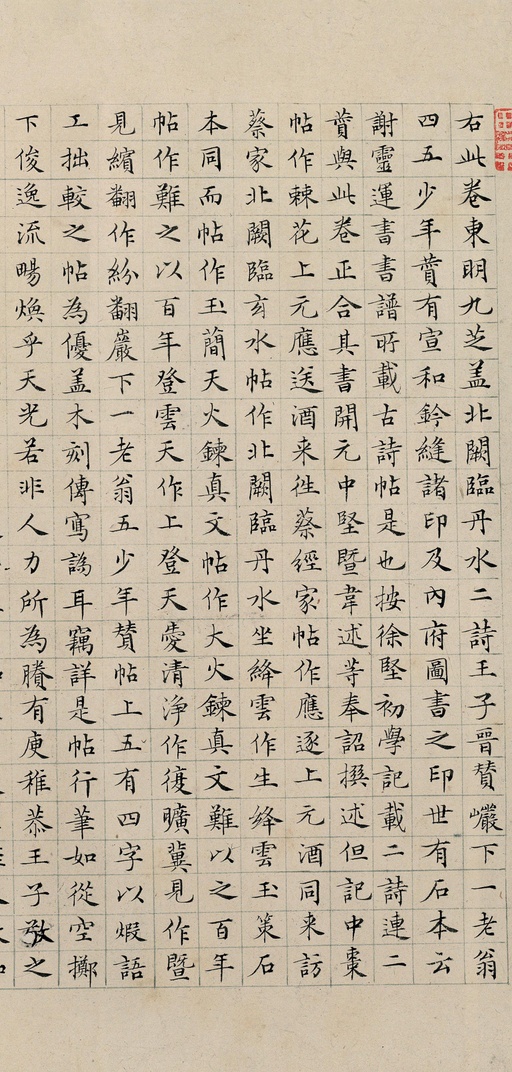 右此卷東明九芝盖北闕臨丹水二詩王子晉賛巗下一老翁
四五少年賛有宣和鈐縫諸印及內府圖書之印世有石本云
謝靈運書書譜所載古詩帖是也按徐堅初學記載二詩連二
賛與此卷正合其書開元中堅暨韋述等奉詔撰述但記中棗
帖作棘花上元應送酒来徃蔡經家帖作應逐上元酒同来訪
蔡家北闕臨玄水帖作北闕臨丹水坐絳雲作生絳雲玉策石
本同而帖作玉簡天火鍊真文帖作大火鍊真文難以之百年
帖作難之以百年登雲天作上登天愛清淨作復曠冀見作暨
見繽翻作紛翻巖下一老翁五少年賛帖上五有四字以煆語
工拙較之帖為優盖木刻傳寫譌耳竊詳是帖行筆如從空擲
下俊逸流暢煥乎天光若非人力所為賸有庾稚恭王子敬之